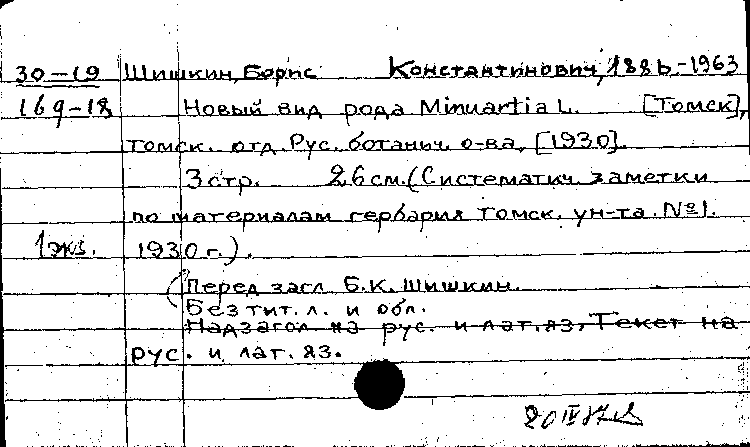 30-19 Шишкин, Борис Константинович, 1886-1963
169-18 Новый вид рода Minuartia L. [Томск],
Томск. отд. Рус. ботанич. о-ва, [1930].
3 стр. 26 см. (Систематич. заметки
по материалам гербария Томск. ун-та. №1.
1 экз. 1930 г.).
(Перед загл. Б.К. Шишкин.
Без тит. л. и обл.
Надзагол. на рус. и лат. яз. Текст на
рус. и лат. яз.
20 IV 87